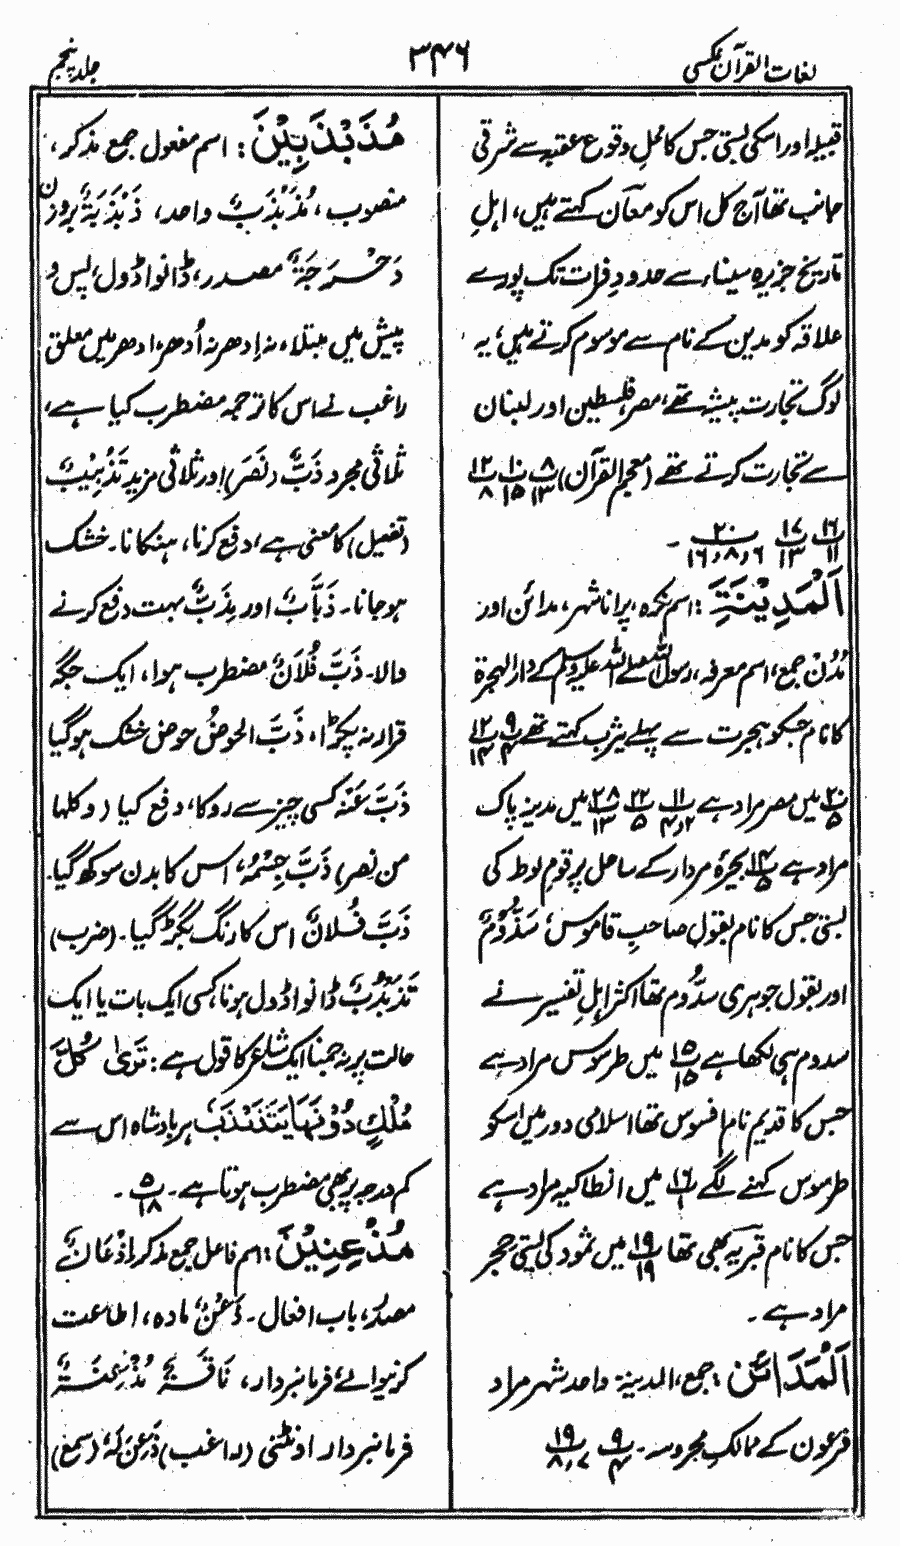 لغات القرآن عکسی
۳۴۶
جلد پنجم
قبیلہ اور اسکی بستی جس کا محلِ وقوع عقبہ سے شرقی
جانب تھا آج کل اس کو معان کہتے ہیں، اہلِ
تاریخ جزیرہ سیناء سے حدودِ فرات تک پورے
علاقہ کو مدین کے نام سے موسوم کرتے ہیں؛ یہ
لوگ تجارت پیشہ تھے، مصر، فلسطین اور لبنان
سے تجارت کرتے تھے (معجم القرآن) ۸/۱۳ ۱۰/۱۵ ۱۲/۸
۱۶/۱۱ ۱۷/۱۳ ۲۰/۱۶،۸،۶ ۔
اَلْمَدِیْنَۃِ : اسم نکرہ، پرانا شہر، مدائن اور
مُدُنْ جمع، اسم معرفہ، رسول اللہ صلے اللہ علیہ وسلم کے دار الہجرۃ
کا نام جسکو ہجرت سے پہلے یثرب کہتے تھے ۹/۴ ۱۲/۱۳
۲۰/۵ میں مصر مراد ہے ۱۱/۲،۴ ۲۲/۵ ۲۸/۱۳ میں مدینہ پاک
مراد ہے ۱۴/۵ بحیرۂ مردار کے ساحل پر قوم لوط کی
بستی جس کا نام بقول صاحبِ قاموس سَذُوْمٌ
اور بقول جوہری سدُوم تھا اکثر اہلِ تفسیر نے
سدوم ہی لکھا ہے ۱۵/۱۵ میں طرسوس مراد ہے
جس کا قدیم نام افسوس تھا اسلامی دور میں اسکو
طرسوس کہنے لگے ۱۶/۱ میں انطاکیہ مراد ہے
جس کا نام قبریہ بھی تھا ۱۹/۱۹ میں ثمود کی بستی حجر
مراد ہے ۔
اَلْمَدَائِنِ : جمع، المدینۃ واحد شہر مراد
فرعون کے ممالکِ محروسہ ۔ ۹/۴ ۱۹/۸،۷
مُذَبْذَبِیْنَ : اسم مفعول جمع مذکر،
منصوب، مُذَبْذَبٌ واحد، ذَبْذَبَۃٌ بروزن
دَحْرَجَۃٌ مصدر، ڈانوا ڈول، پس و
پیش میں مبتلا، نہ اِدھر نہ اُدھر، ادھر میں معلق
راغب نے اس کا ترجمہ مضطرب کیا ہے،
ثلاثی مجرد ذَبَّ (نَصَرَ) اور ثلاثی مزید تَذْبِیْبٌ
(تفعیل) کا معنی ہے، دفع کرنا، ہنکانا ۔ خشک
ہوجانا ۔ ذَبَّابٌ اور مِذَبٌّ بہت دفع کرنے
والا ۔ ذَبَّ فُلَانٌ مضطرب ہوا، ایک جگہ
قرار نہ پکڑا، ذَبَّ الحوضُ حوض خشک ہوگیا
ذَبَّ عَنْہُ کسی چیز سے روکا، دفع کیا (وکلہا
من نصر) ذَبَّ جِسْمُہٗ، اس کا بدن سوکھ گیا۔
ذَبَّ فُلَانٌ اس کا رنگ بگڑ گیا ۔ (ضرب)
تَذَبْذُبٌ ڈانوا ڈول ہونا، کسی ایک بات یا ایک
حالت پر نہ جمنا ایک شاعر کا قول ہے: تَرٰی کُلَّ
مُلْکٍ دُوْنَہَا یَتَذَبْذَبُ ہر بادشاہ اس سے
کم درجہ پر بھی مضطرب ہوتا ہے ۔ ۵/۱۸ ۔
مُذْعِنِیْنَ : اسم فاعل جمع مذکر اِذْعَانٌ
مصدر، باب افعال ۔ ذَعْنٌ مادہ، اطاعت
کرنیوالے، فرمانبردار، نَاقَۃٌ مُذْعِنَۃٌ
فرمانبردار اونٹنی (راغب) ذَعِنَ لَہٗ (سمع)